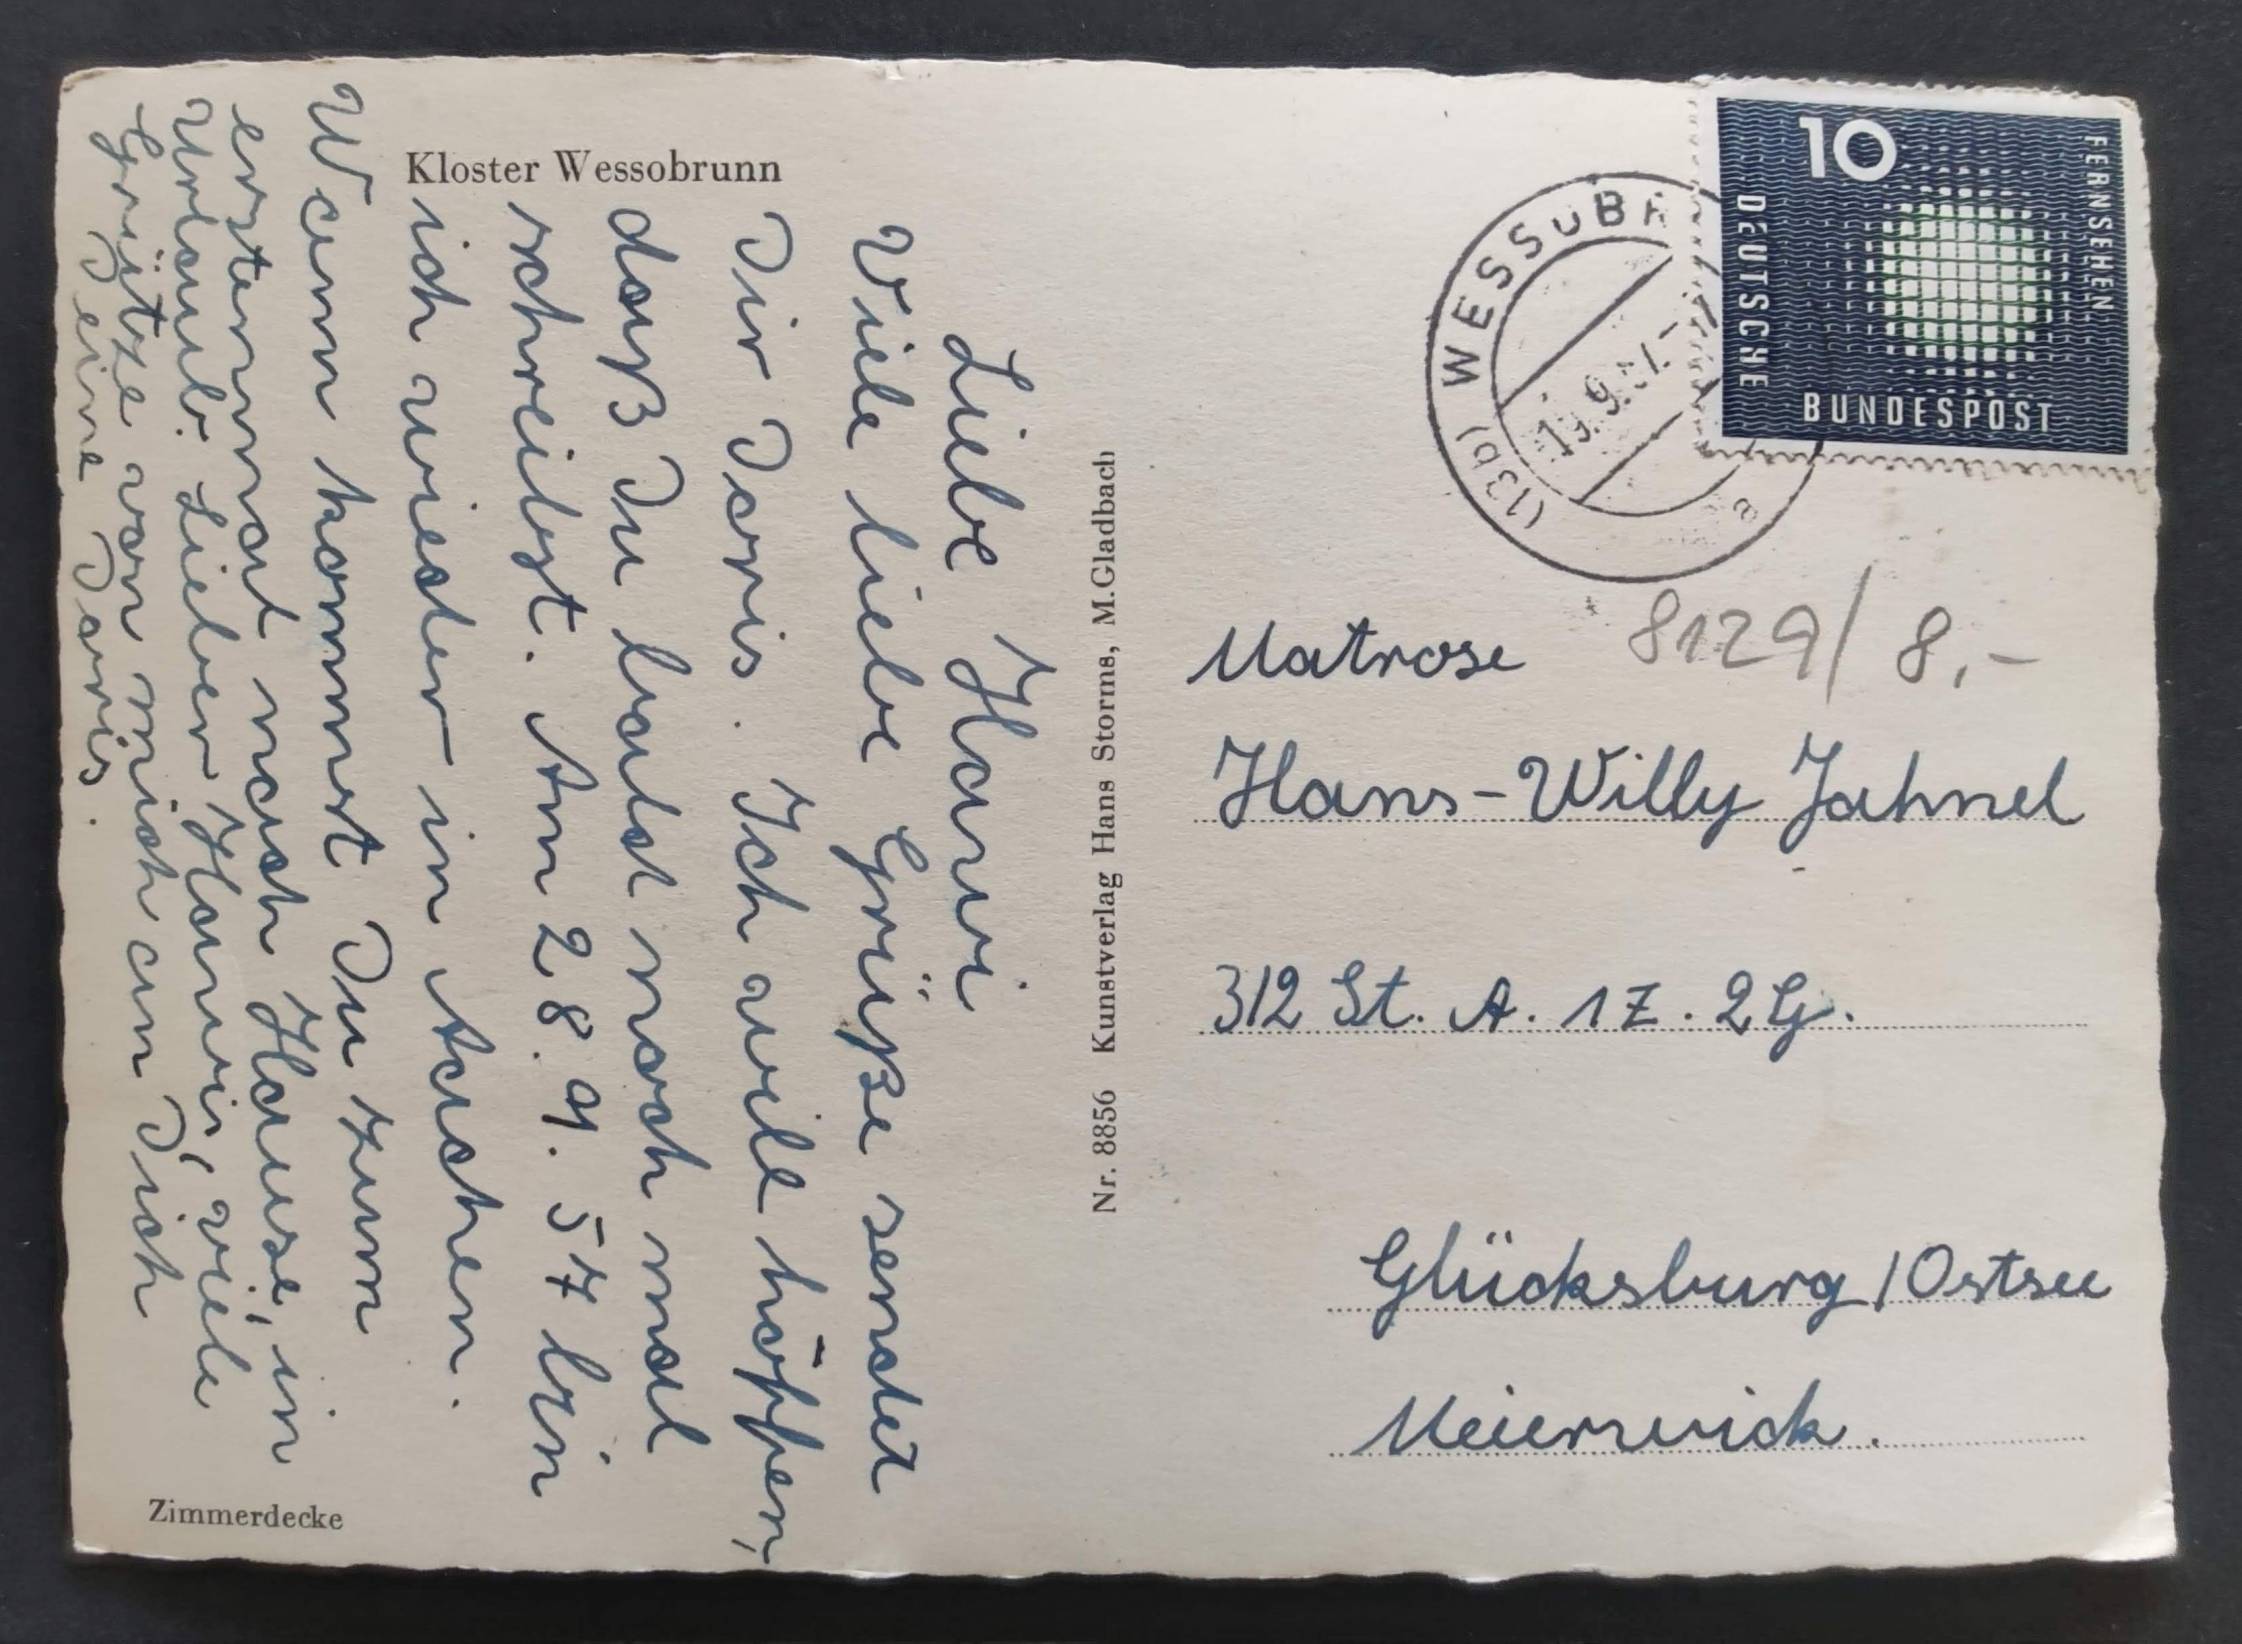 Kloster Wessobrunn
Liebe Hawi
Viele liebe Grüße sendet
Dir Doris. Ich will hoffen,
daß Du bald noch mal
schreibst. Am 28. 9. 57 bin
ich wieder in Aachen.
Wann kommst Du zum
erstenmal nach Hause, in
Urlaub. Lieber Hawi, viele
Grütze von mich an Dich
Deine Doris.
Zimmerdecke
Nr. 8856 Kunstverlag Hans Storms, M.Gladbach
10
FERNSEHEN
DEUTSCHE
BUNDESPOST
(13b) WESSOBR
19.9.57.-
a
8129/ 8,-
Matrose
Hans-Willy Jahnel
312 St. A. 1 Z. 2 G.
Glücksburg/Ostsee
Meierwick.